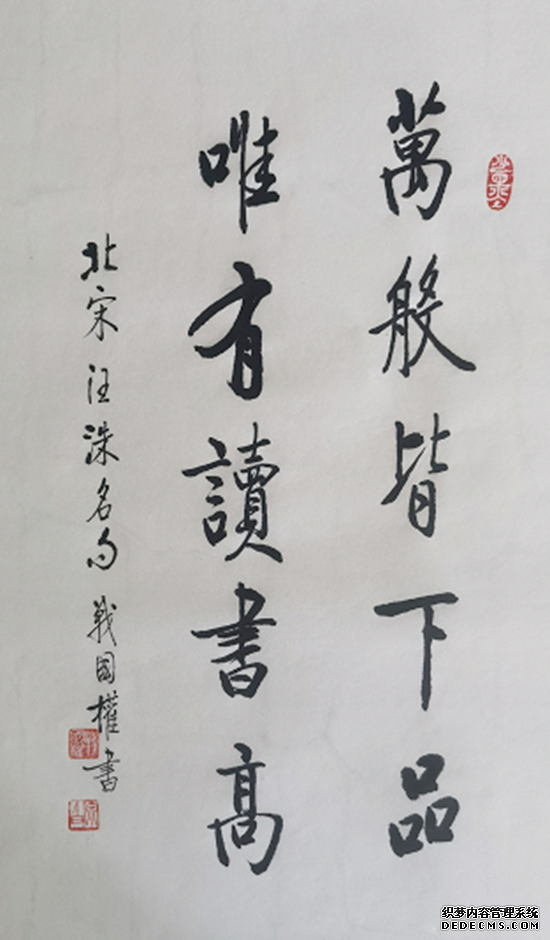 萬般皆下品
唯有讀書高
北宋汪洙名句 戰國權書
织梦内容管理系统
DEDECMS.COM